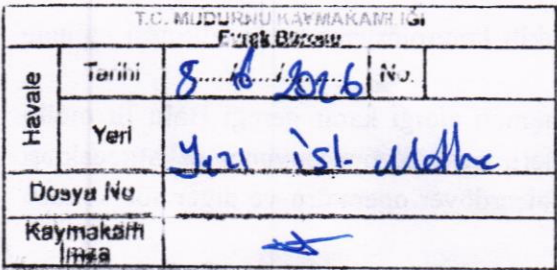 T.C. MUDURNU KAYMAKAMLIĞI
Evrak Bürosu
Havale
Tarihi 8 2026 No.
Yeri Yazı İşl.
Dosya No
Kaymakam
İmza